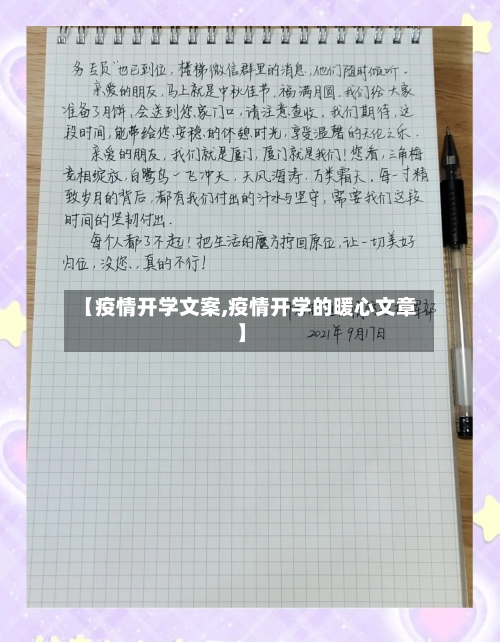 务专员”也已到位，楼梯微信群里的消息，他们随时倾听。
亲爱的朋友，马上就是中秋佳节，福满月圆，我们给大家
准备了月饼，会送到您家门口，请注意查收。我们期待，这
段时间，能带给您安稳的休憩时光，享受温馨的天伦之乐。
亲爱的朋友，我们就是厦门，厦门就是我们！您看，三角梅
竞相绽放，白鹭鸟一飞冲天，天风海涛，万类霜天，每一寸精
致岁月的背后，都有我们付出的汗水与坚守，需要我们这段
时间的坚韧付出。
每个人都了不起！把生活的魔方拧回原位，让一切美好
归位，没您，真的不行！
【疫情开学文案,疫情开学的暖心文章
】
2021年9月17日